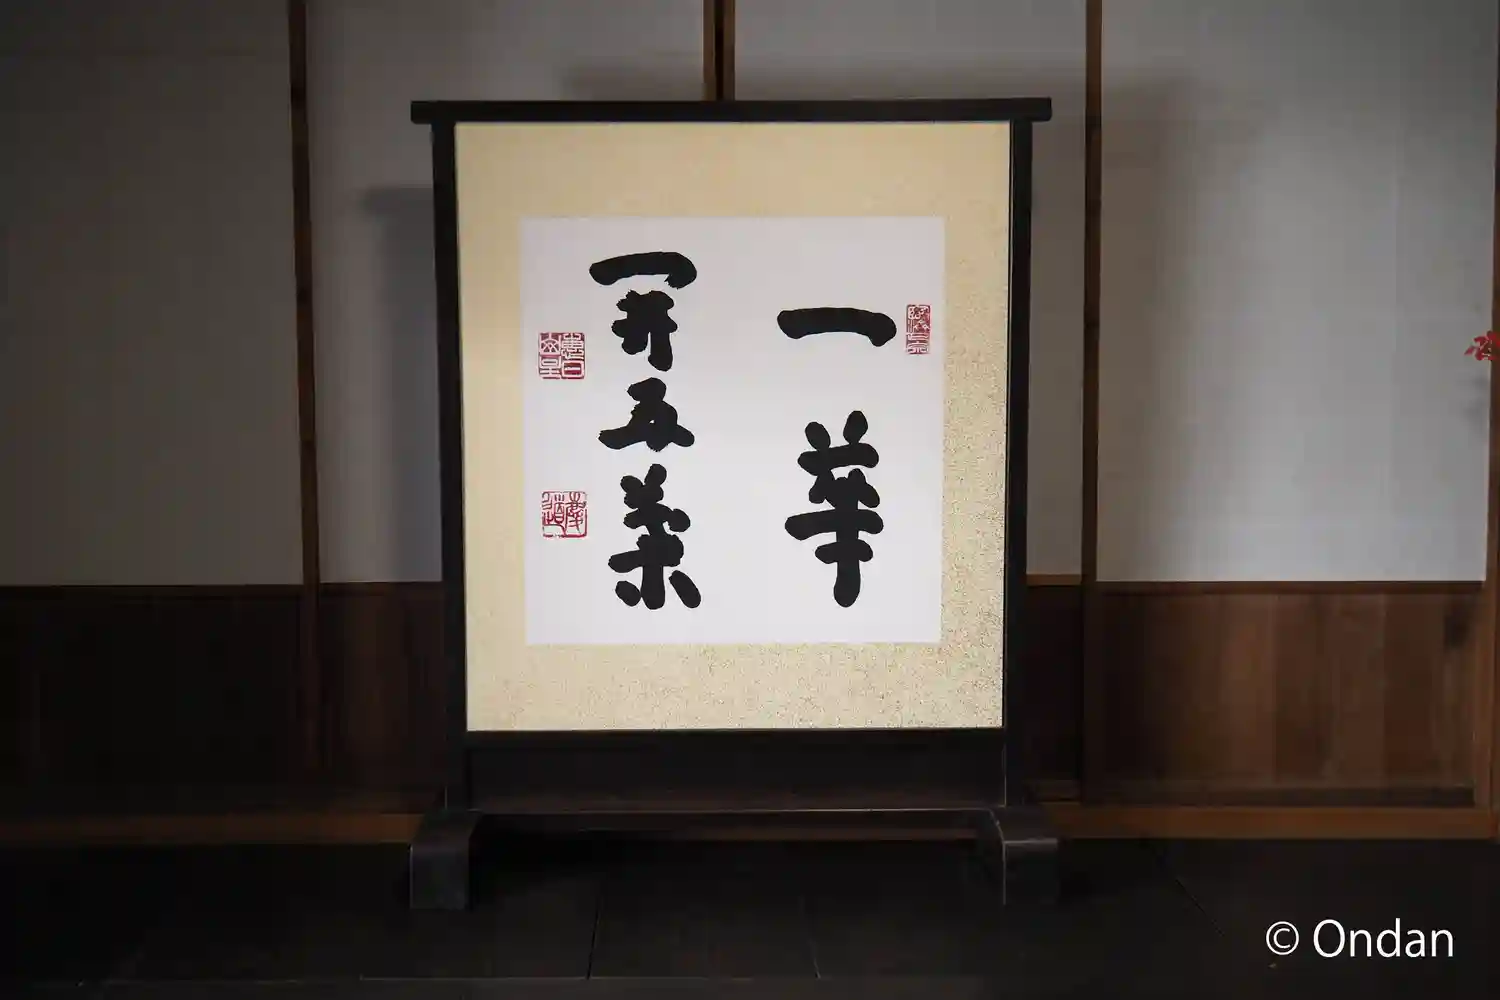 一華
開五葉
© Ondan